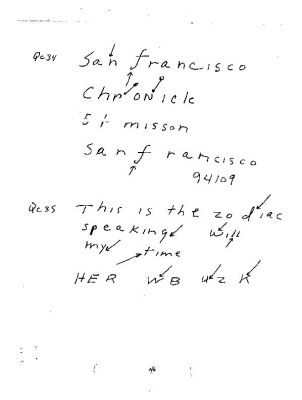 Qc34 San francisco
Chronicle
5 t misson
San francisco
94109
Qc35 This is the zodiac
speaking will
my time
HER WB UZ K